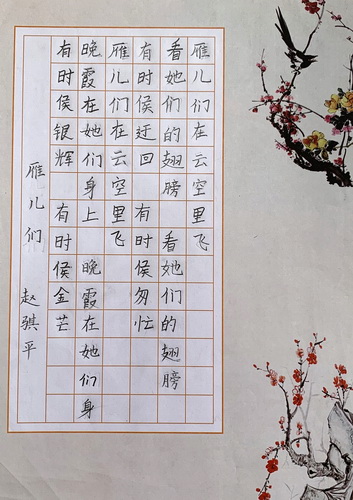 雁儿们在云空里飞
看她们的翅膀 看她们的翅膀
有时侯迂回 有时侯匆忙
雁儿们在云空里飞
晚霞在她们身上 晚霞在她们身
有时侯银辉 有时侯金芒
雁儿们 赵骐平